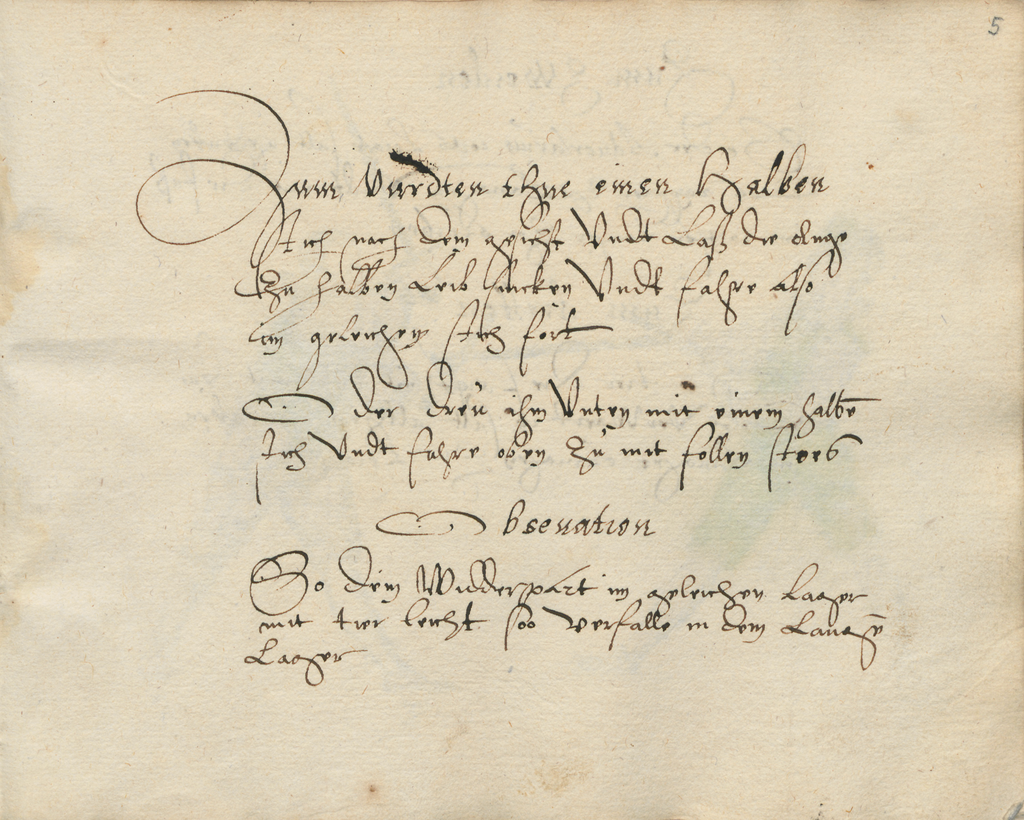 5
Zum Vierdten thue einen Halben
stich nach dem gesicht Vndt Laß die klinge
Zu halben Leib sincken Vndt fahre also
im geleichen stich fort
Oder dreu ihm Vnten mit einem halbē
stich Vndt fahre oben Zu mit follen stoes
Obseuation
So dein Widderpart im geleichen Laager
mit tier leicht soo verfalle in dem Langē
Laager